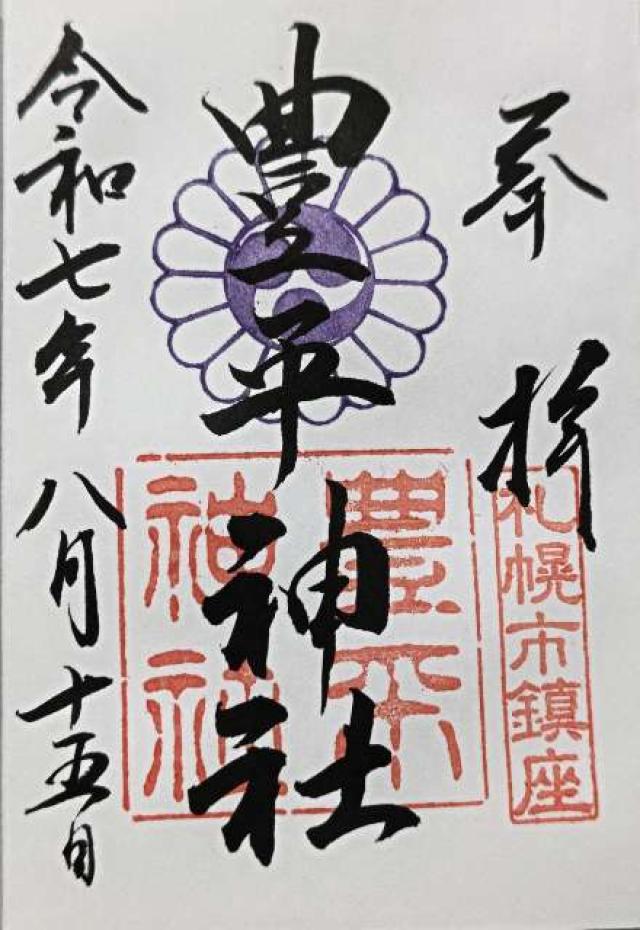 奉拝
札幌市鎮座
豊平神社
豊平
神社
令和七年八月十五日